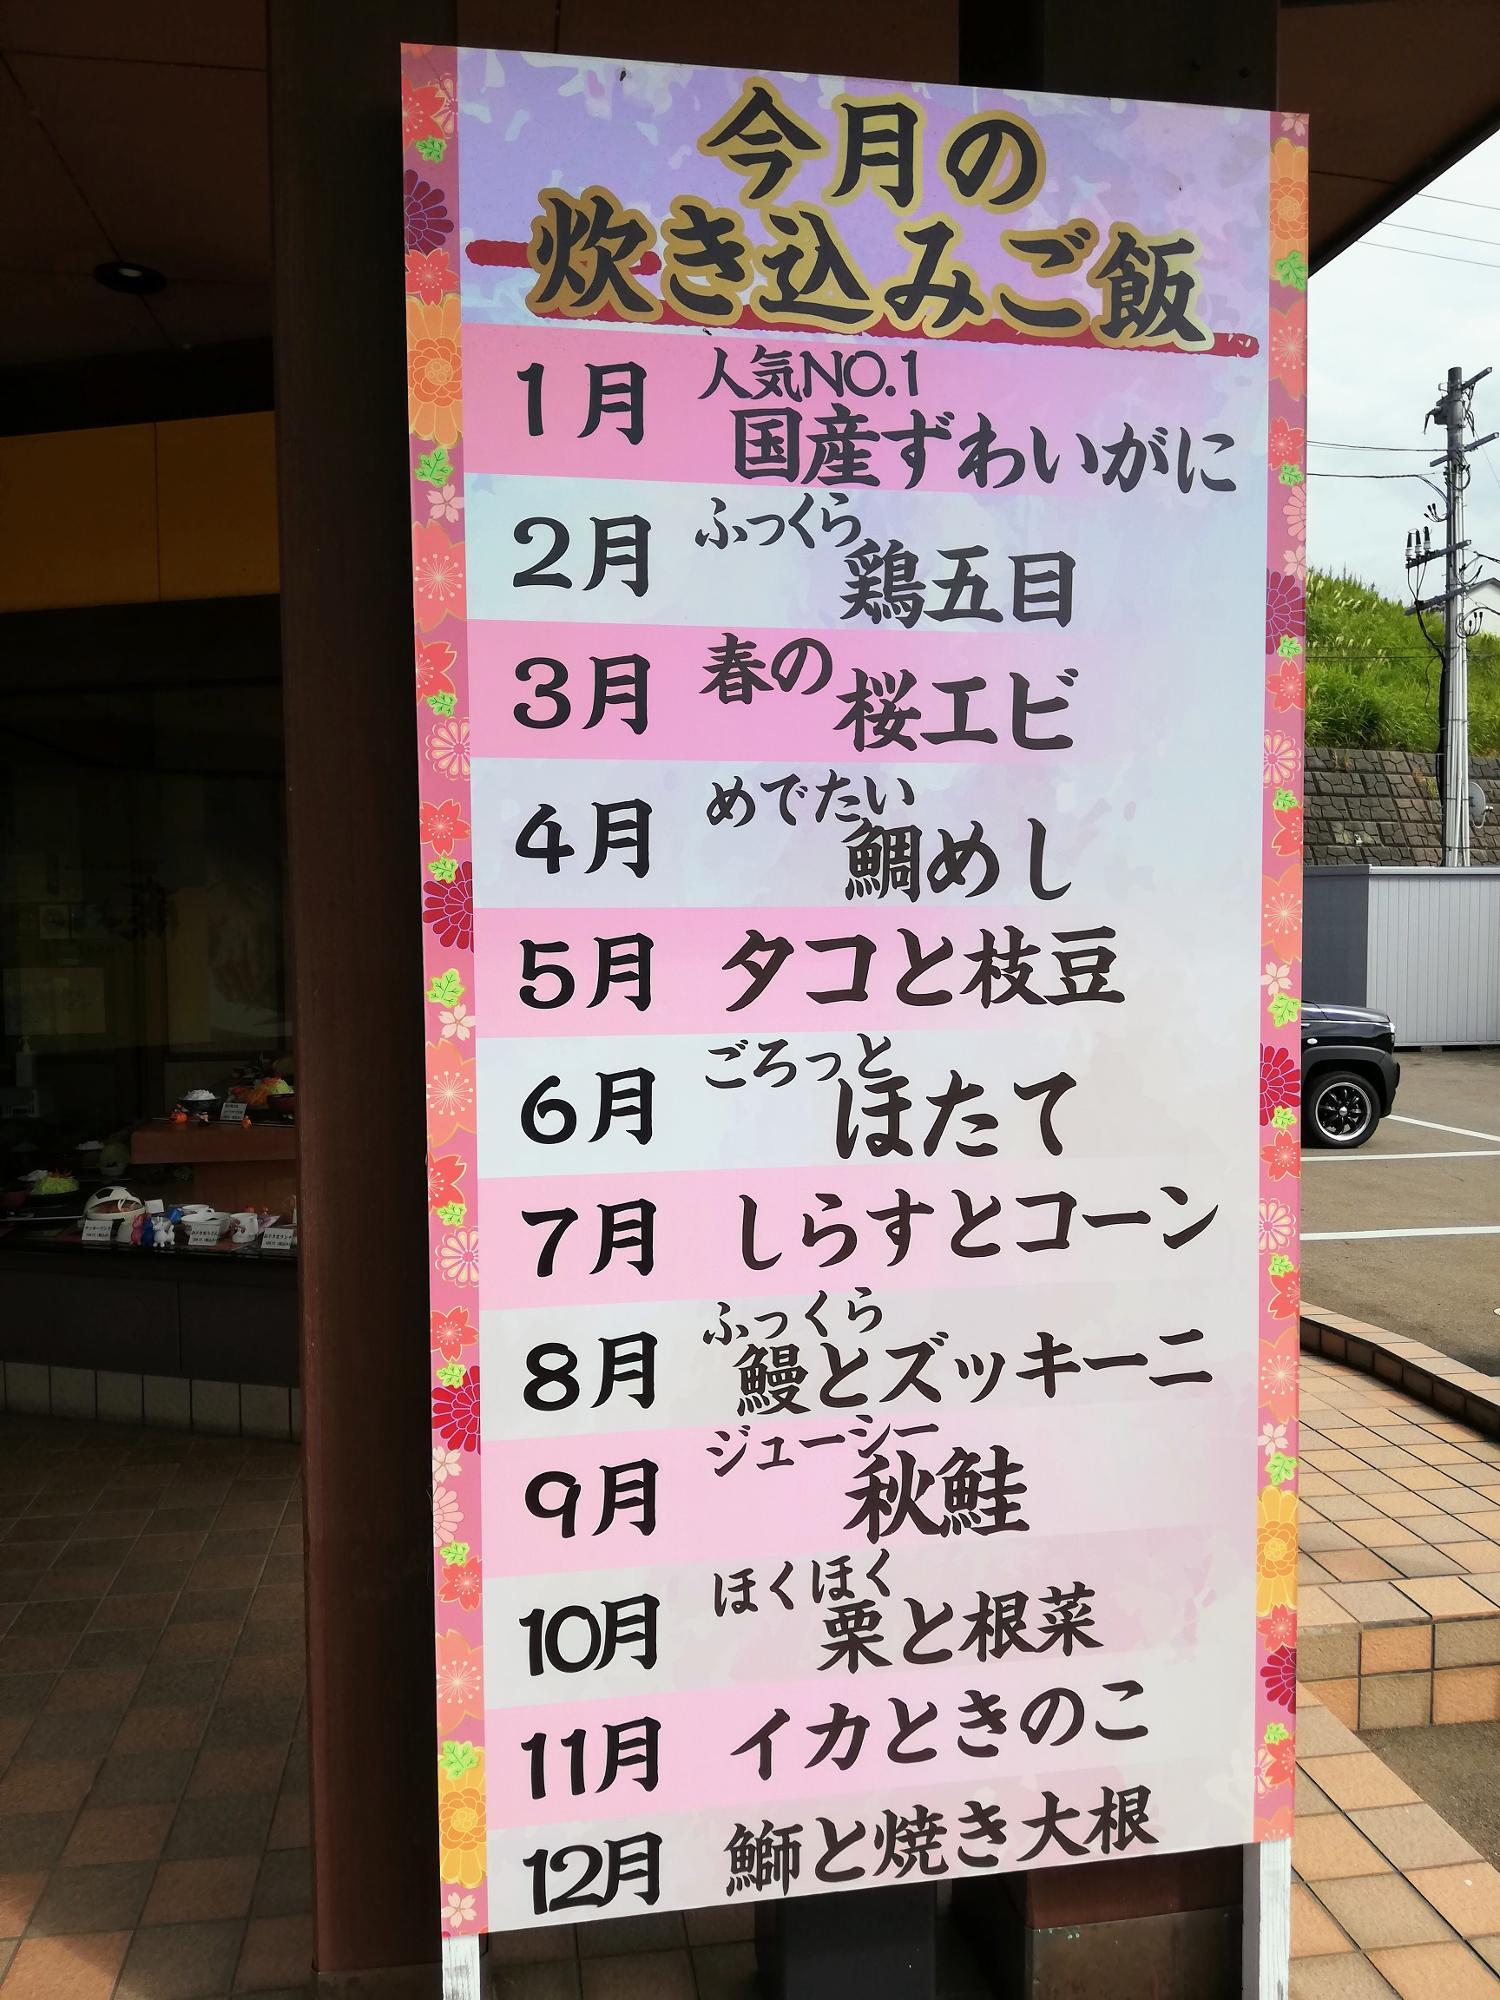 今月の
炊き込みご飯
1月
人気NO.1
国産ずわいがに
2月
ふっくら
鶏五目
3月
春の
桜エビ
4月
めでたい
鯛めし
5月
タコと枝豆
6月
ごろっと
ほたて
7月
しらすとコーン
8月
ふっくら
鰻とズッキーニ
9月
ジューシー
秋鮭
10月
ほくほく
栗と根菜
11月
イカときのこ
12月
鰤と焼き大根